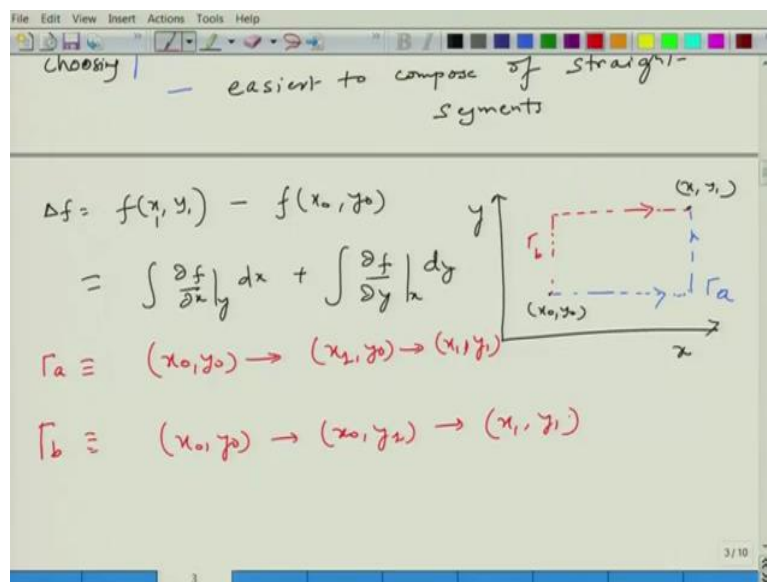 File Edit View Insert Actions Tools Help
B I
choosing
— easiest to compose of straight
segments
Δf = f(x₁, y₁) − f(x₀, y₀)
= ∫ ∂f/∂x|y dx + ∫ ∂f/∂y|x dy
Γa ≡ (x₀, y₀) → (x₁, y₀) → (x₁, y₁)
Γb ≡ (x₀, y₀) → (x₀, y₁) → (x₁, y₁)
y
(x, y₁)
Γb
Γa
(x₀, y₀)
x
3/10
3